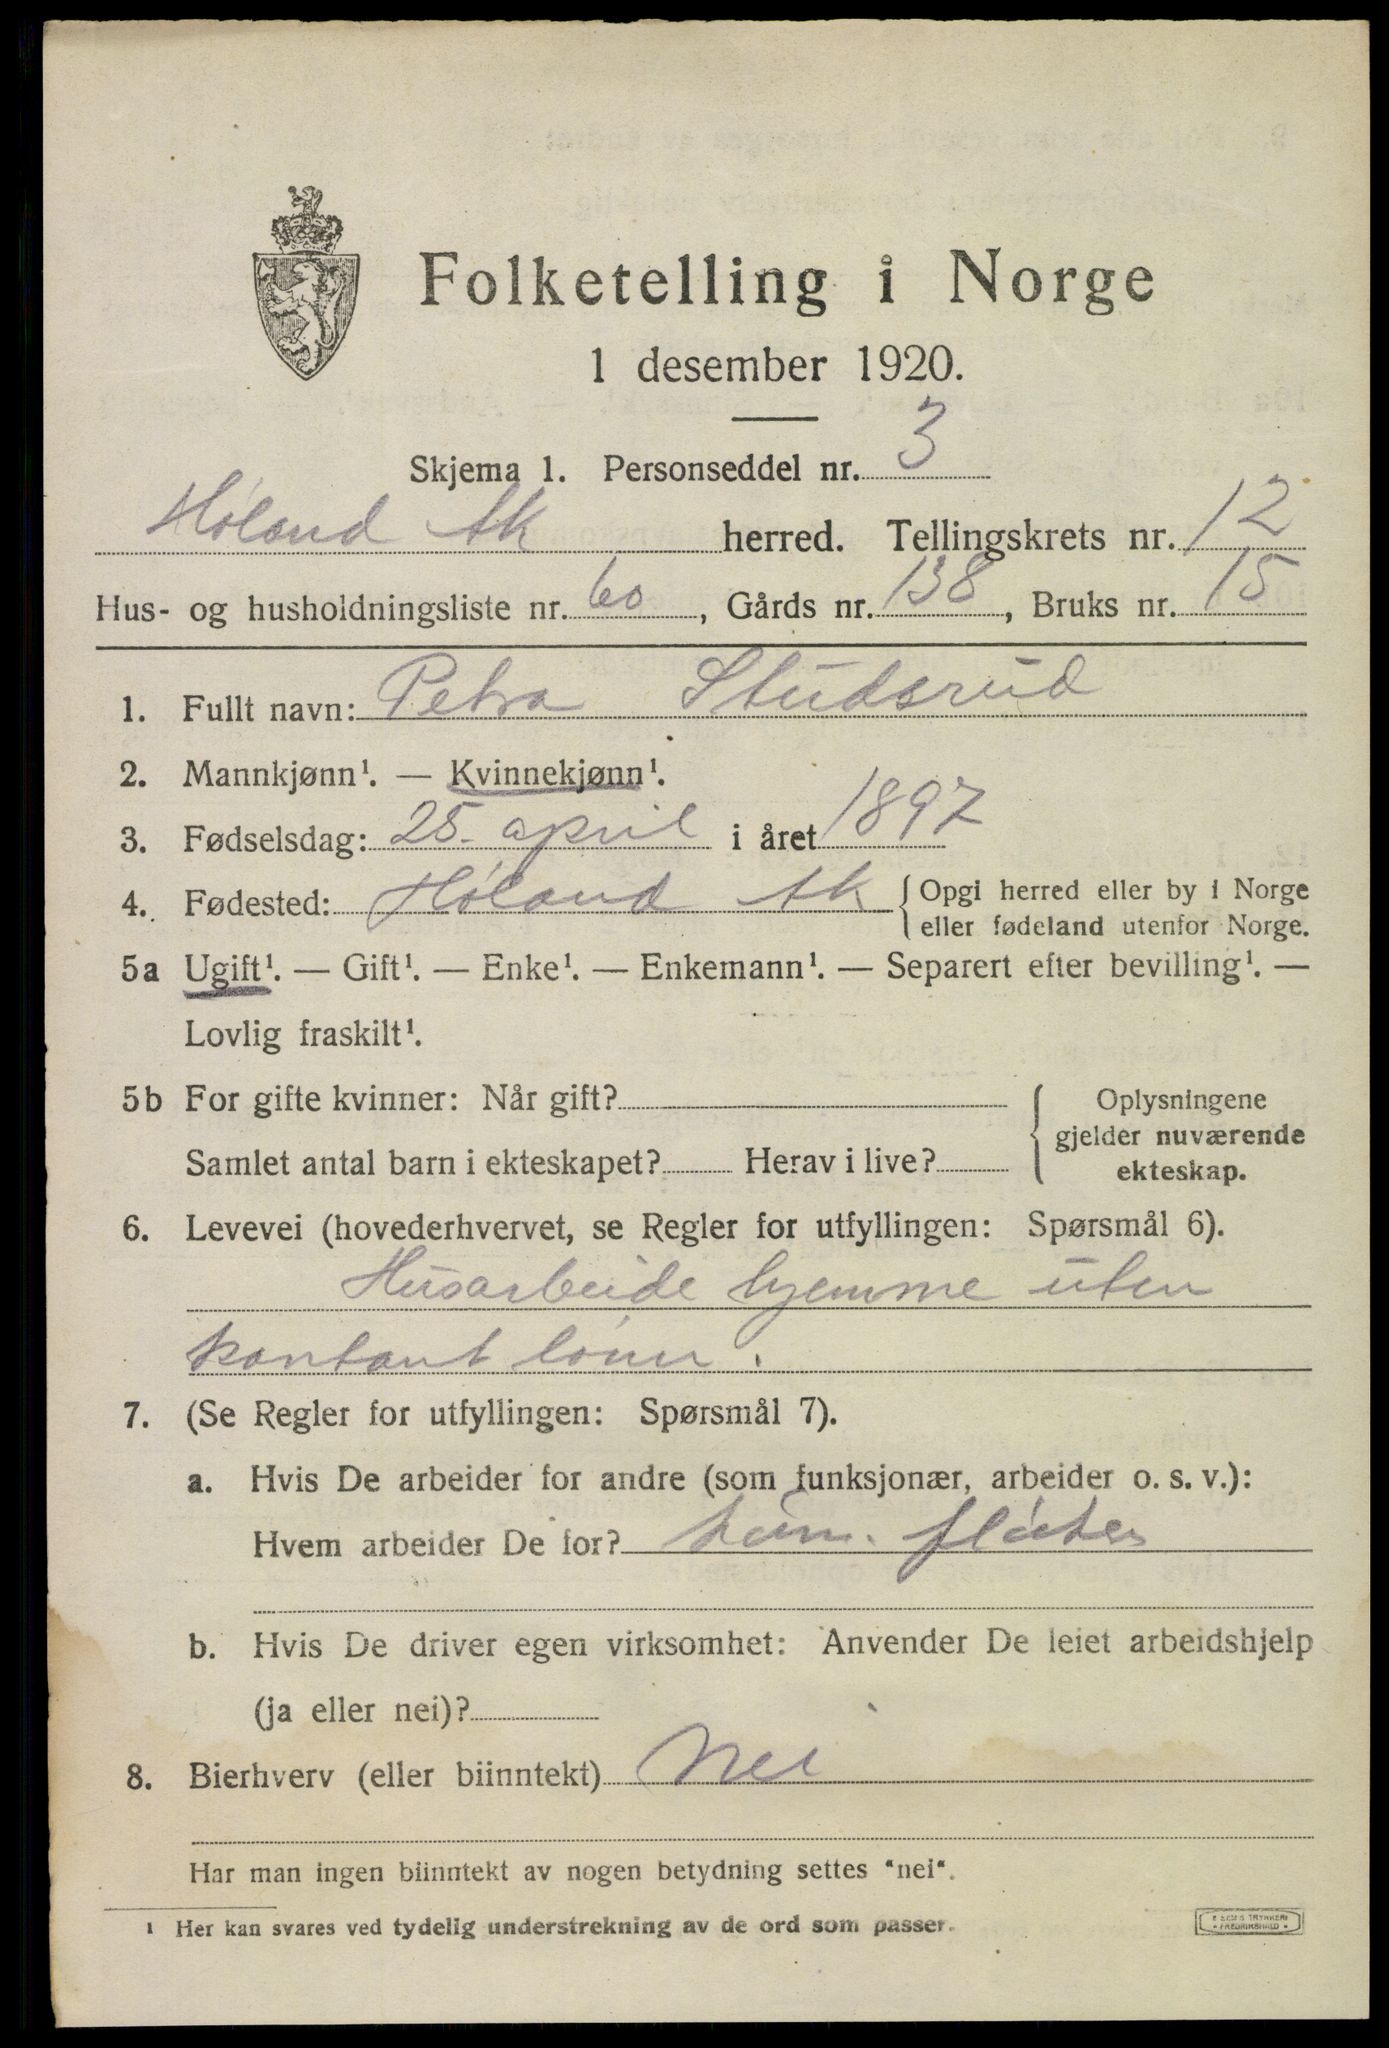 Folketelling i Norge
1 desember 1920.
Skjema 1. Personseddel nr. 3
Høland Ak herred. Tellingskrets nr. 12
Hus- og husholdningsliste nr. 60, Gårds nr. 138, Bruks nr. 15
1. Fullt navn: Petra Studsrud
2. Mannkjønn¹. — Kvinnekjønn¹.
3. Fødselsdag: 25. april i året 1897
4. Fødested: Høland Ak { Opgi herred eller by i Norge
eller fødeland utenfor Norge.
5a Ugift¹. — Gift¹. — Enke¹. — Enkemann¹. — Separert efter bevilling¹. —
Lovlig fraskilt¹.
5b For gifte kvinner: Når gift?
Samlet antal barn i ekteskapet? Herav i live?
Oplysningene
gjelder nuværende
ekteskap.
6. Levevei (hovederhvervet, se Regler for utfyllingen: Spørsmål 6).
Husarbeide hjemme uten
kontant lønn.
7. (Se Regler for utfyllingen: Spørsmål 7).
a. Hvis De arbeider for andre (som funksjonær, arbeider o. s. v.):
Hvem arbeider De for? tøm. fløter
b. Hvis De driver egen virksomhet: Anvender De leiet arbeidshjelp
(ja eller nei)?
8. Bierhverv (eller biinntekt) Nei
Har man ingen biinntekt av nogen betydning settes "nei".
¹ Her kan svares ved tydelig understrekning av de ord som passer.